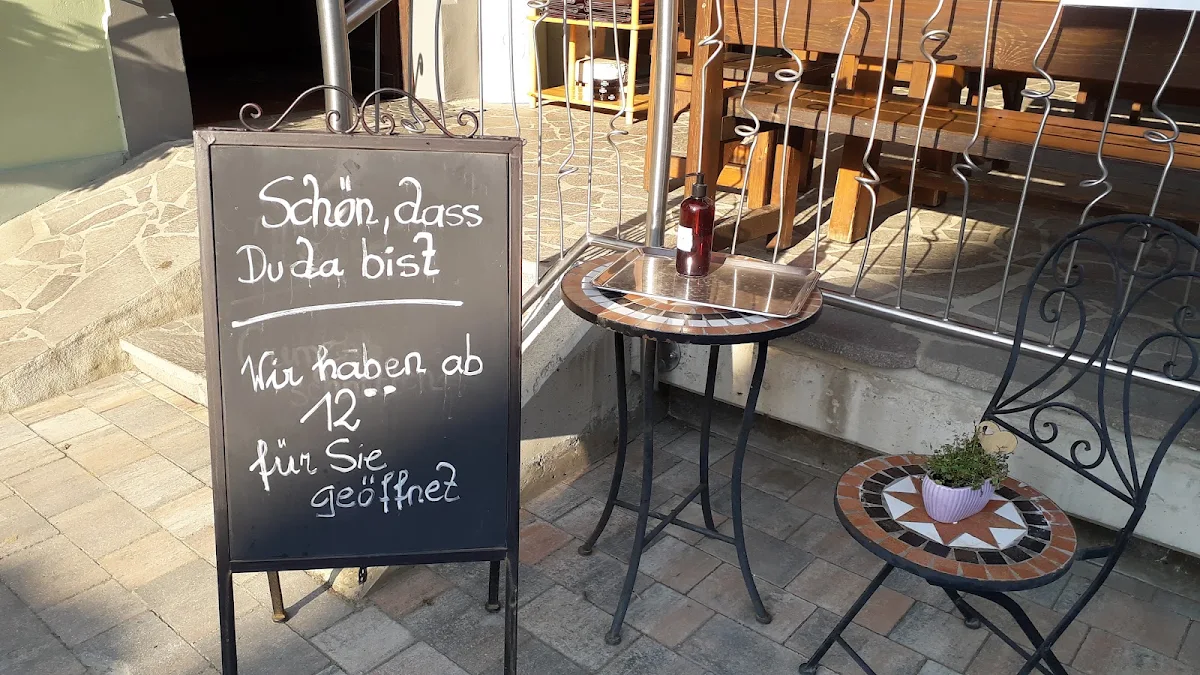 Schön, dass
Du da bist
Wir haben ab
12°°
für Sie
geöffnet